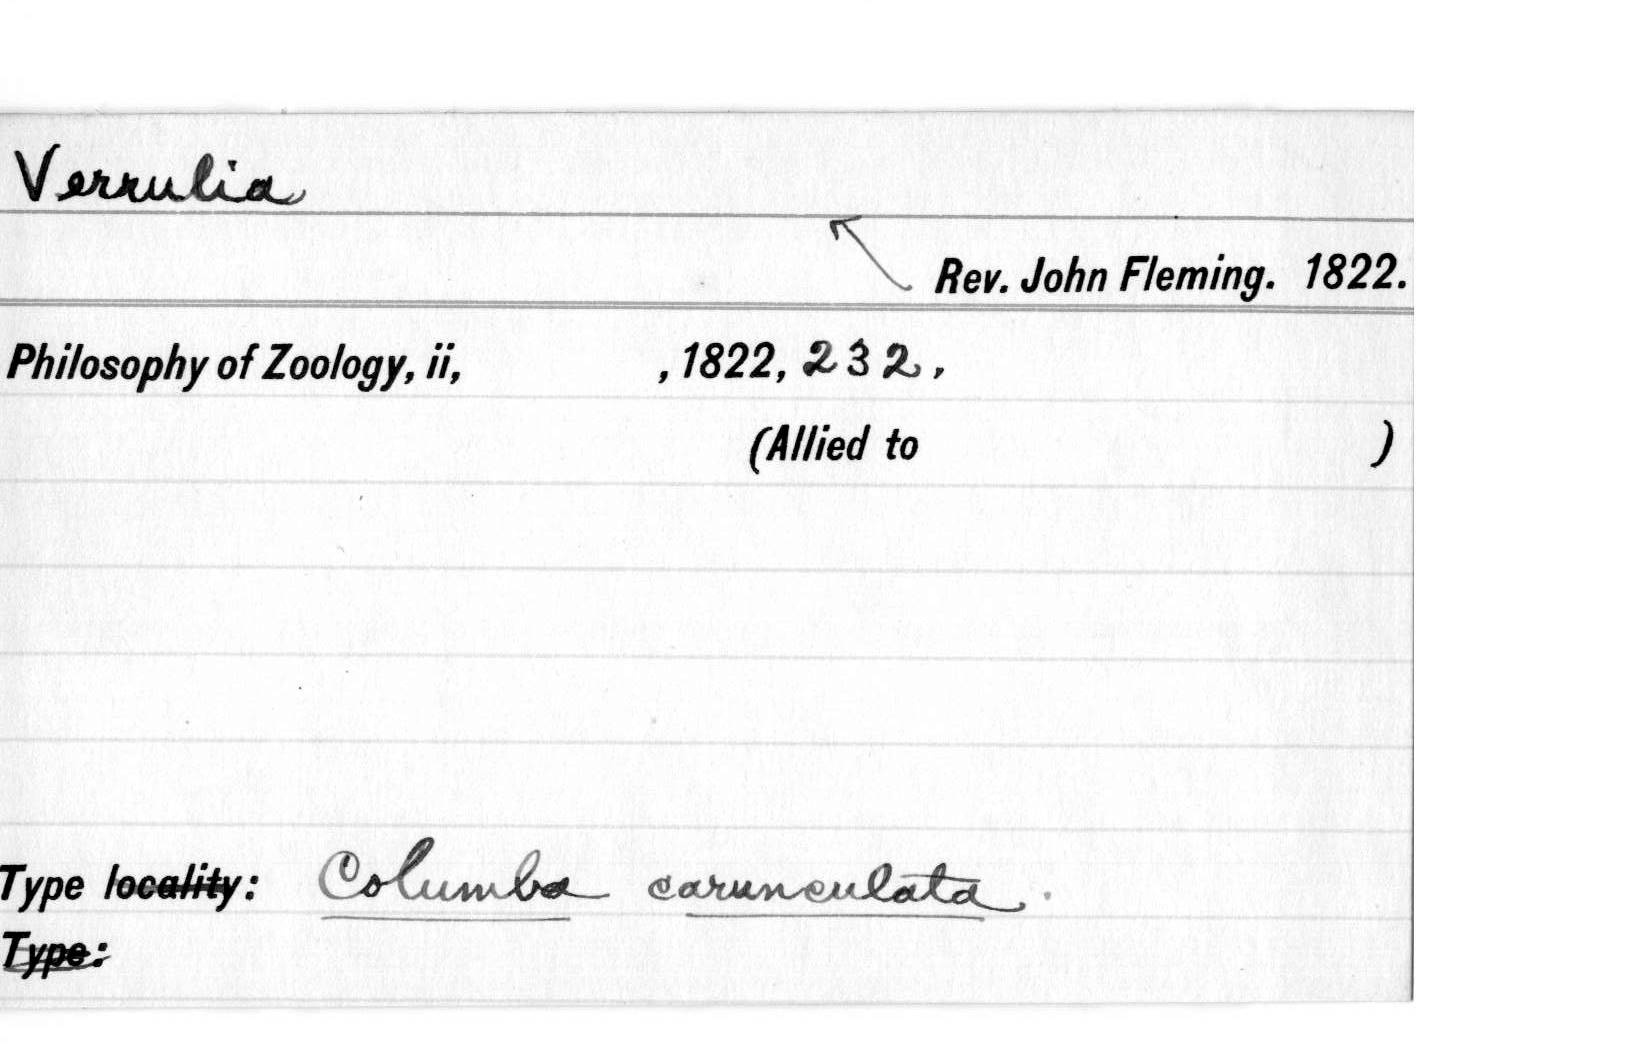 Verrulia
Rev. John Fleming. 1822.
Philosophy of Zoology, ii, , 1822, 232,
(Allied to )
Type locality: Columba carunculata.
Type: